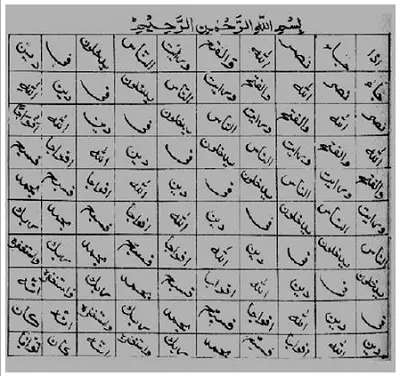 بسم الله الرحمن الرحيم
اذا جاء نصر الله والفتح ورايت الناس يدخلون في دين
جاء نصر الله والفتح ورايت الناس يدخلون في دين الله
نصر الله والفتح ورايت الناس يدخلون في دين الله افواجا
الله والفتح ورايت الناس يدخلون في دين الله افواجا فسبح
والفتح ورايت الناس يدخلون في دين الله افواجا فسبح بحمد
ورايت الناس يدخلون في دين الله افواجا فسبح بحمد ربك
الناس يدخلون في دين الله افواجا فسبح بحمد ربك واستغفره
يدخلون في دين الله افواجا فسبح بحمد ربك واستغفره انه
في دين الله افواجا فسبح بحمد ربك واستغفره انه كان
دين الله افواجا فسبح بحمد ربك واستغفره انه كان توابا